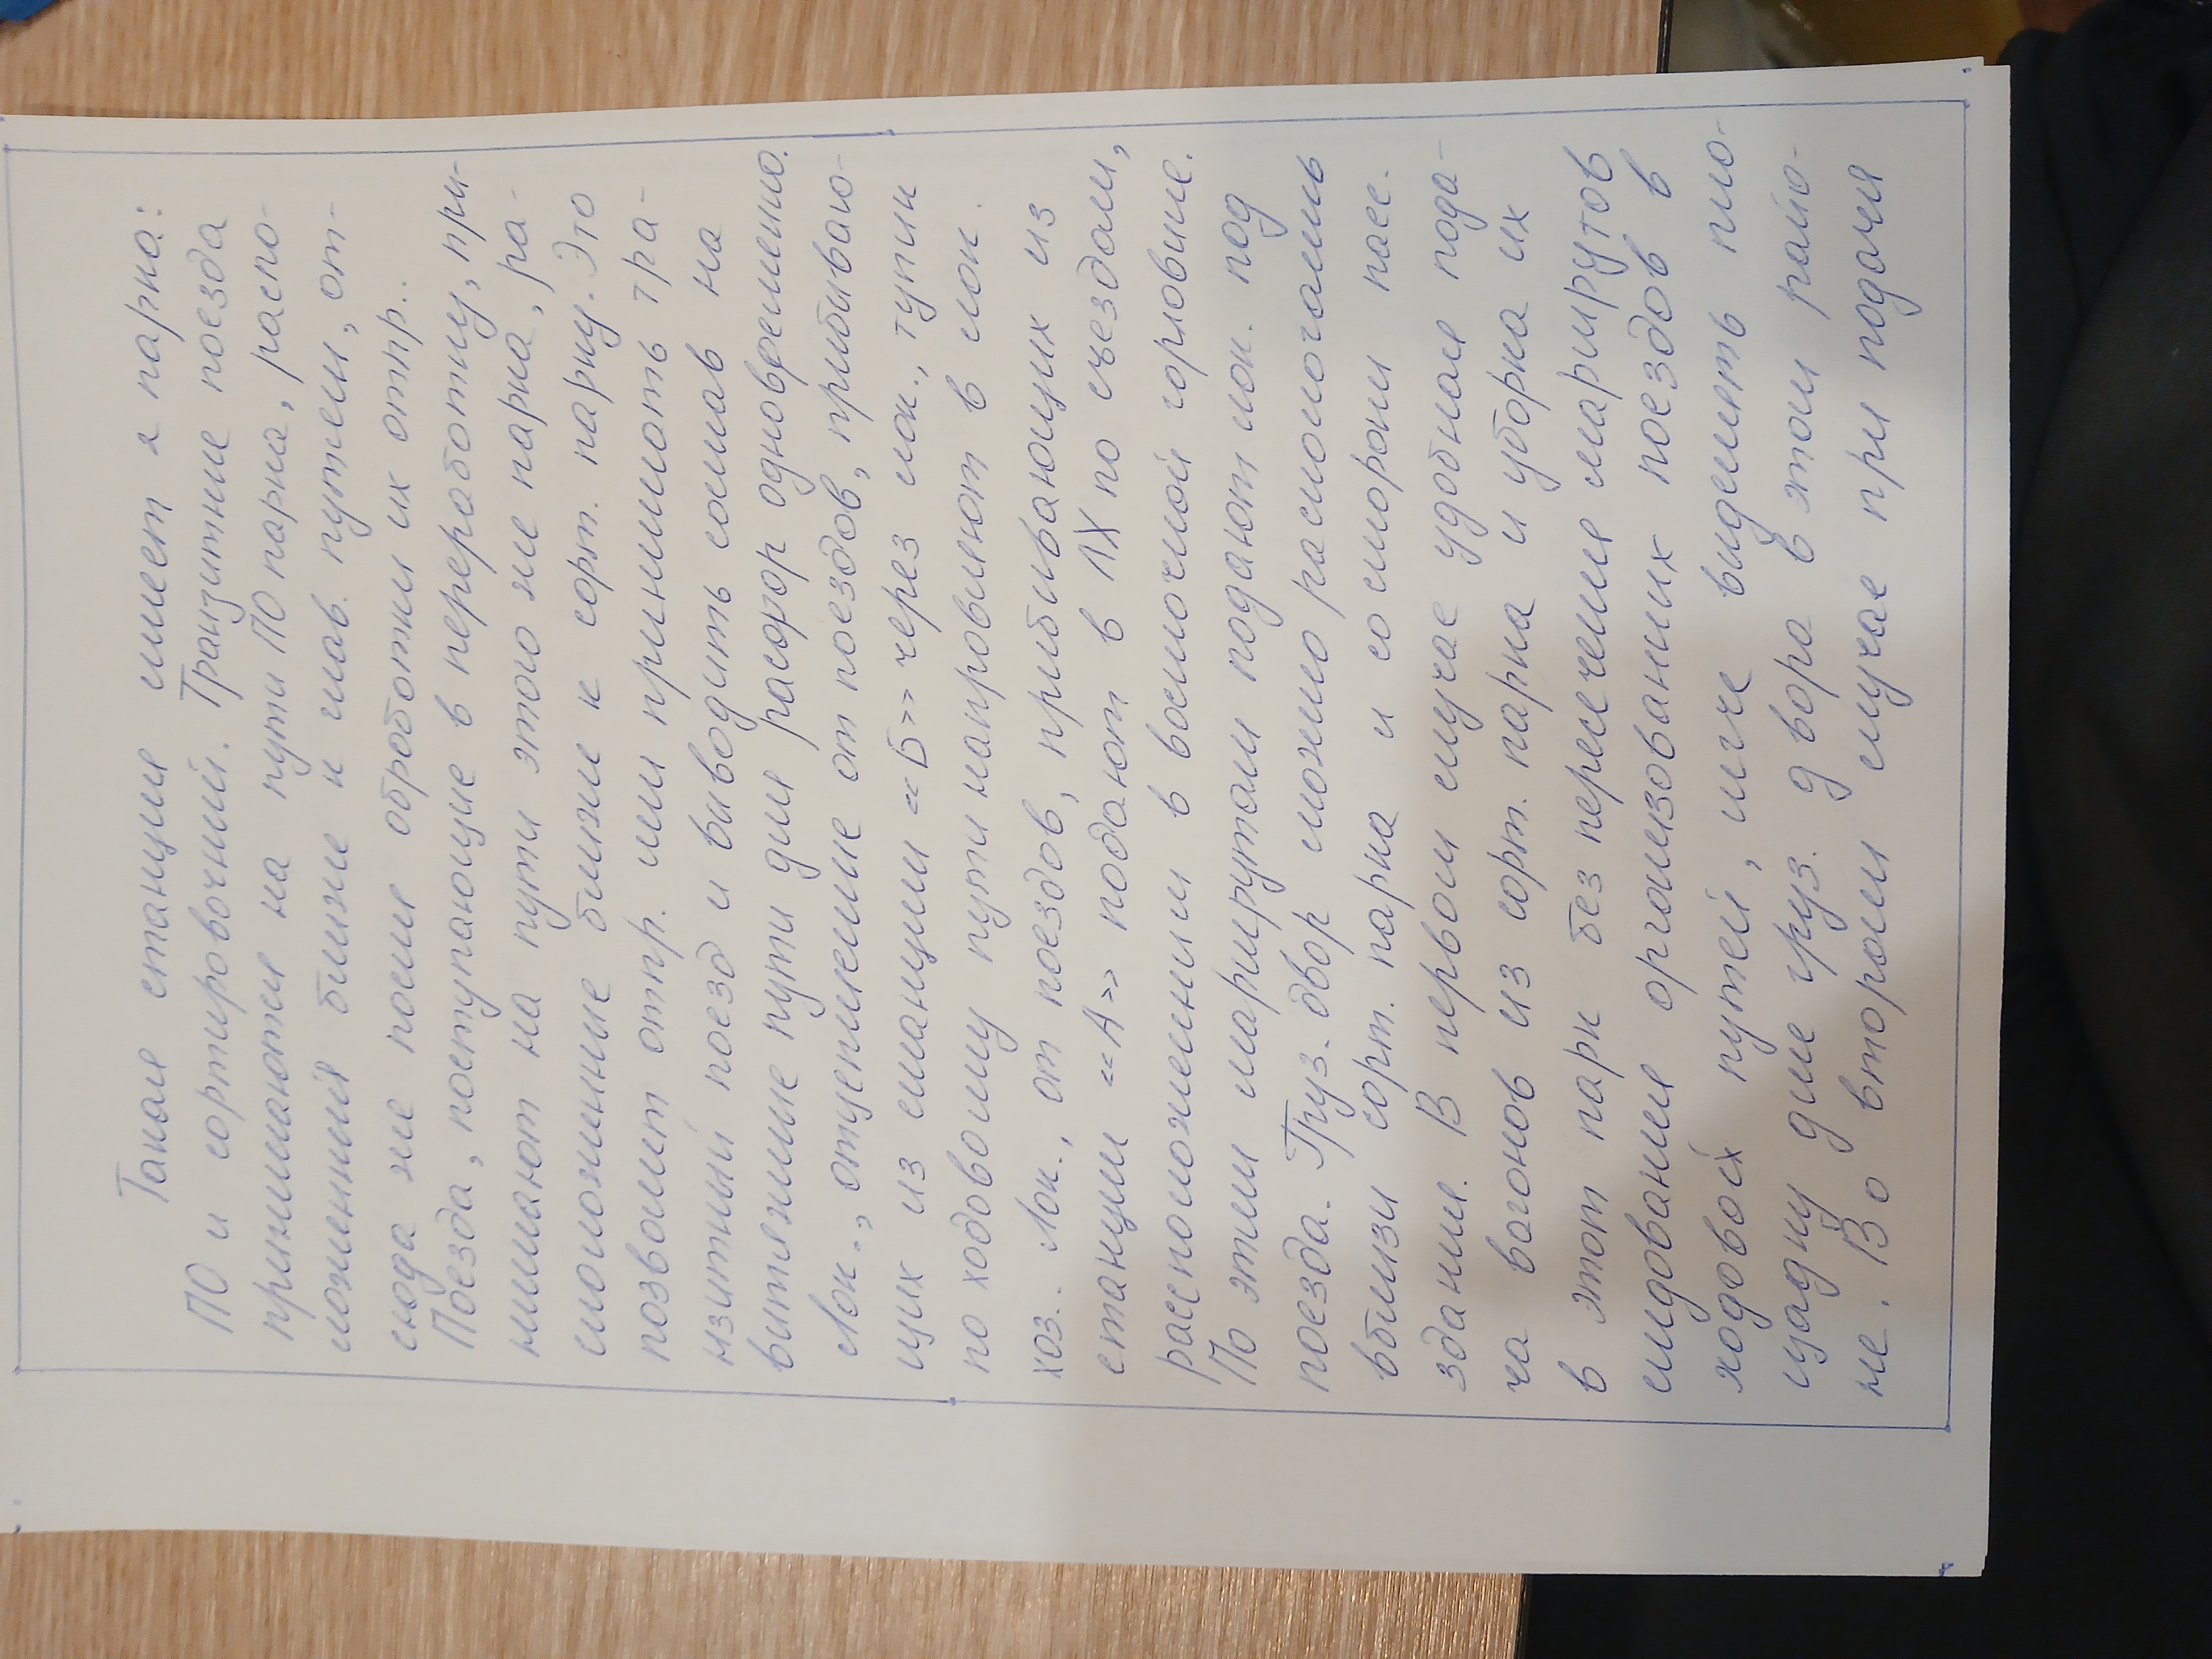 Такая станция имеет 2 парка:
ПО и сортировочний. Транзитние поезда
принимаются на пути ПО парка, распо-
ложенний ближе к глав. путям, от-
сюда же после обработки их отпр..
Поезда, поступающие в переработку, при-
нимают на пути этого же парка, ра-
сположинние ближе к сорт. парку. Это
позволит отпр. или принимать тра-
нзитний поезд и виводить состав на
витяжние пути для расфор одновременно.
Лок., отцепленние от поездов, прибиваю-
щих из станции «Б» через лок., тупик
по ходовому пути направляют в лок.
хоз.. Лок., от поездов, прибивающих из
станции «А» подают в ЛХ по сьездам,
расспоположенни в восточной горловине.
По этим маршрутам подают лок. под
поезда. Груз. двор можно расмологать
вблизи сорт. парка и со сторони пасс.
здания. В первом случае удобная пода-
ча вагонов из сорт. парка и уборка их
в этот парк без пересечения маршрутов
следования организованих поездов в
ходовой путей, легче виделять пло-
щадку для груз. двора в этом райо-
не. Во втором случае при подачи